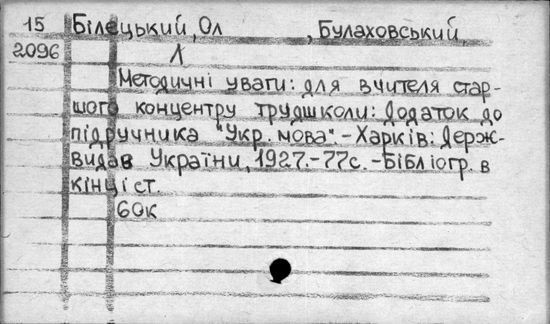 15 Білецький, Ол , Булаховський,
2096 Л
Методичні уваги: для вчителя стар-
шого концентру трудшколи: Додаток до
підручника "Укр. мова".-Харків: Держ-
видав України, 1927.-77с.-Бібліогр. в
кінці ст.
60к